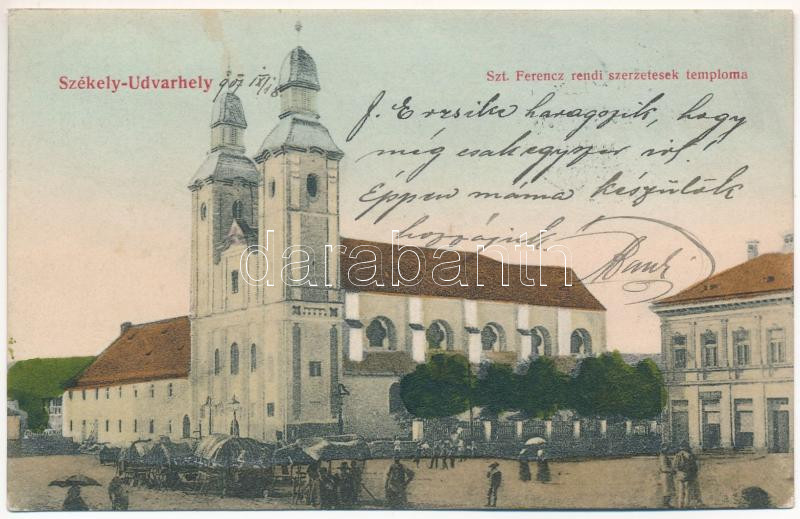 Székely-Udvarhely
907 IX/18
Szt. Ferencz rendi szerzetesek temploma
J. Erzsike haragszik, hogy
még csak egyszer irt!
Éppen máma készülök
hozzájuk.
darabanth